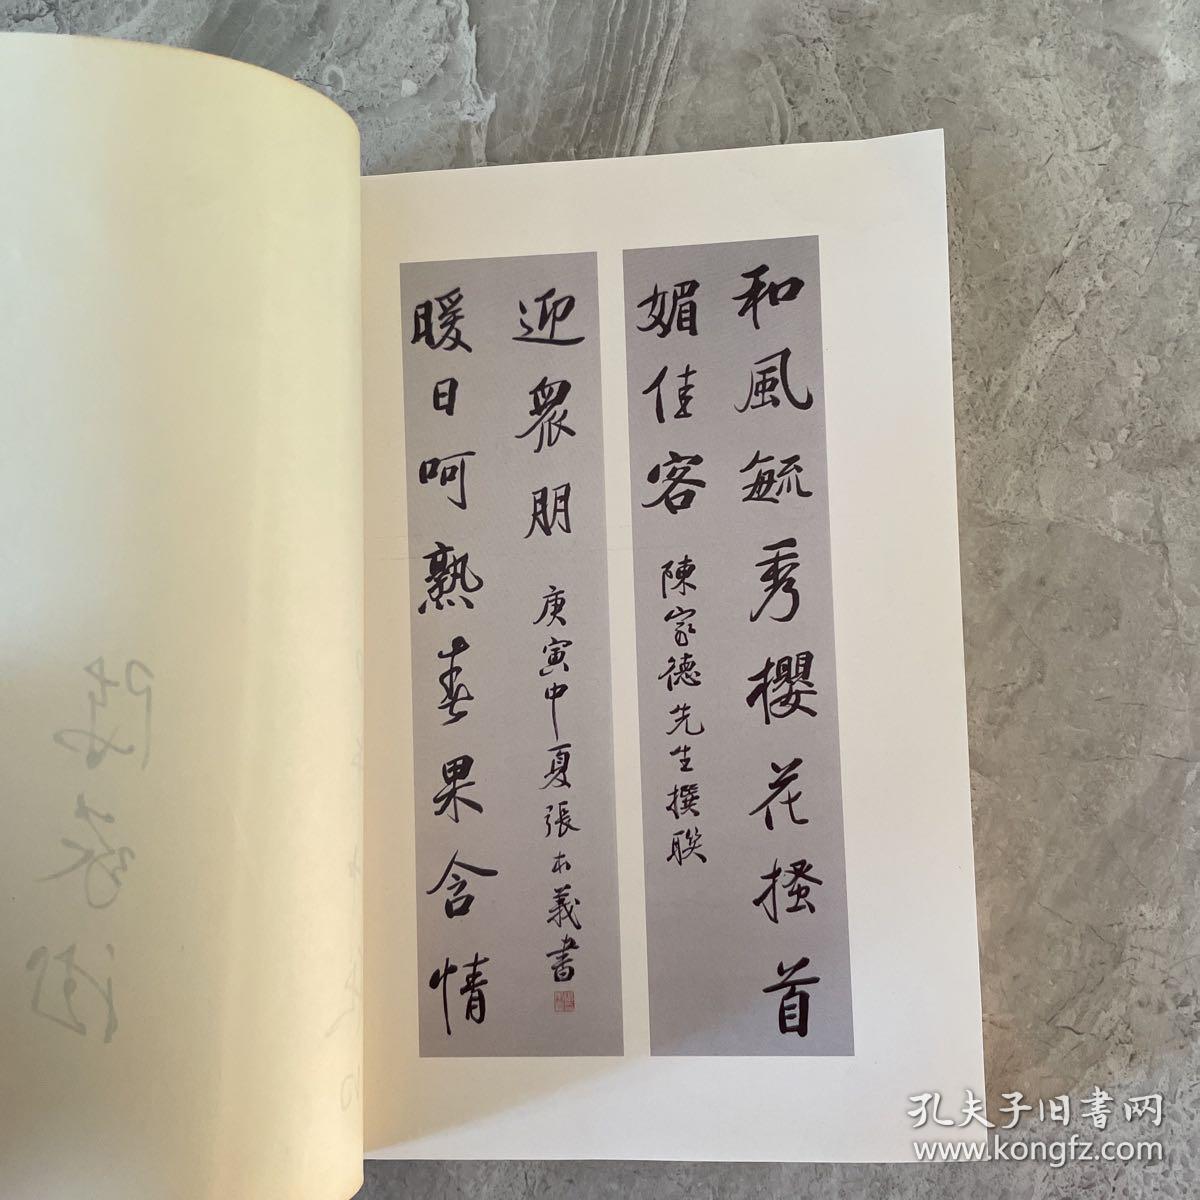 和風毓秀櫻花搔首
媚佳客
陳家德先生撰聯
暖日呵熟春果含情
迎衆朋
庚寅中夏張本義書
孔夫子旧書网
www.kongfz.com